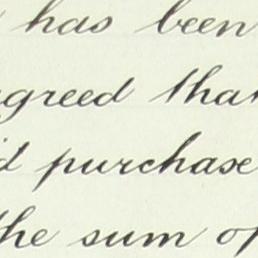 has been
agreed that
d purchase
the sum of